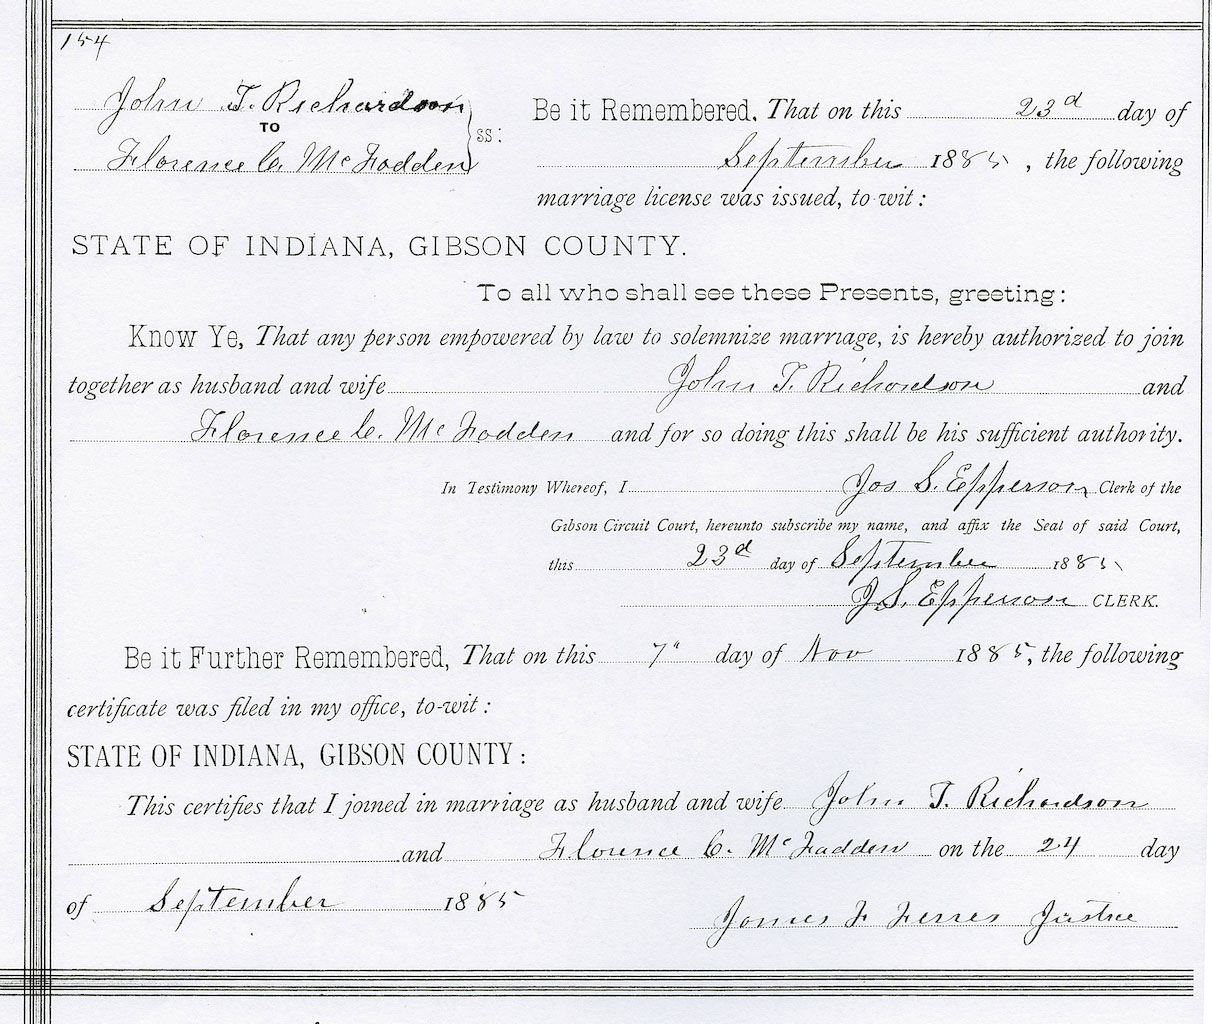 154
John T. Richardson
TO
Florence C. McFadden
ss:
Be it Remembered, That on this 23d day of
September 1885, the following
marriage license was issued, to-wit:
STATE OF INDIANA, GIBSON COUNTY.
To all who shall see these Presents, greeting:
Know Ye, That any person empowered by law to solemnize marriage, is hereby authorized to join
together as husband and wife John T. Richardson and
Florence C. McFadden and for so doing this shall be his sufficient authority.
In Testimony Whereof, I Jos S. Epperson, Clerk of the
Gibson Circuit Court, hereunto subscribe my name, and affix the Seal of said Court,
this 23d day of September 1885
J.S. Epperson CLERK.
Be it Further Remembered, That on this 7" day of Nov 1885, the following
certificate was filed in my office, to-wit:
STATE OF INDIANA, GIBSON COUNTY:
This certifies that I joined in marriage as husband and wife John T. Richardson
and Florence C. McFadden on the 24 day
of September 1885
James F Ferres Justice